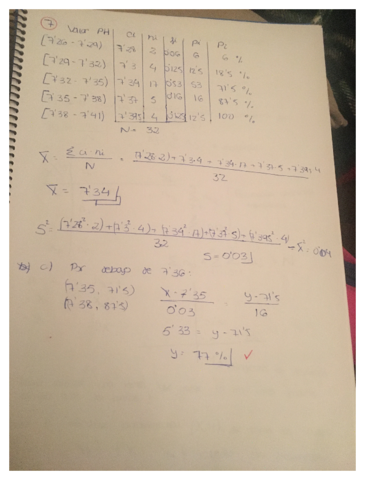 7 Valor PH Ci ni fi Pi Pi
[7'26 - 7'29) 7'28 2 0'06 6 6 %
[7'29 - 7'32) 7'3 4 0'125 12'5 18'5 %
[7'32 - 7'35) 7'34 17 0'53 53 71'5 %
[7'35 - 7'38) 7'37 5 0'16 16 87'5 %
[7'38 - 7'41) 7'395 4 0'125 12'5 100 %
N = 32
x̄ = Σ ci ni / N = 7'28·2 + 7'3·4 + 7'34·17 + 7'37·5 + 7'395·4 / 32
x̄ = 7'34
S² = (7'28²·2) + (7'3²·4) + (7'34²·17) + (7'37²·5) + (7'395²·4) / 32 - x̄² =
S = 0'03
c) Por debajo de 7'36:
(7'35, 71'5) x - 7'35 / 0'03 = y - 71'5 / 16
(7'38, 87'5)
5'33 = y - 71'5
y = 77 % ✓